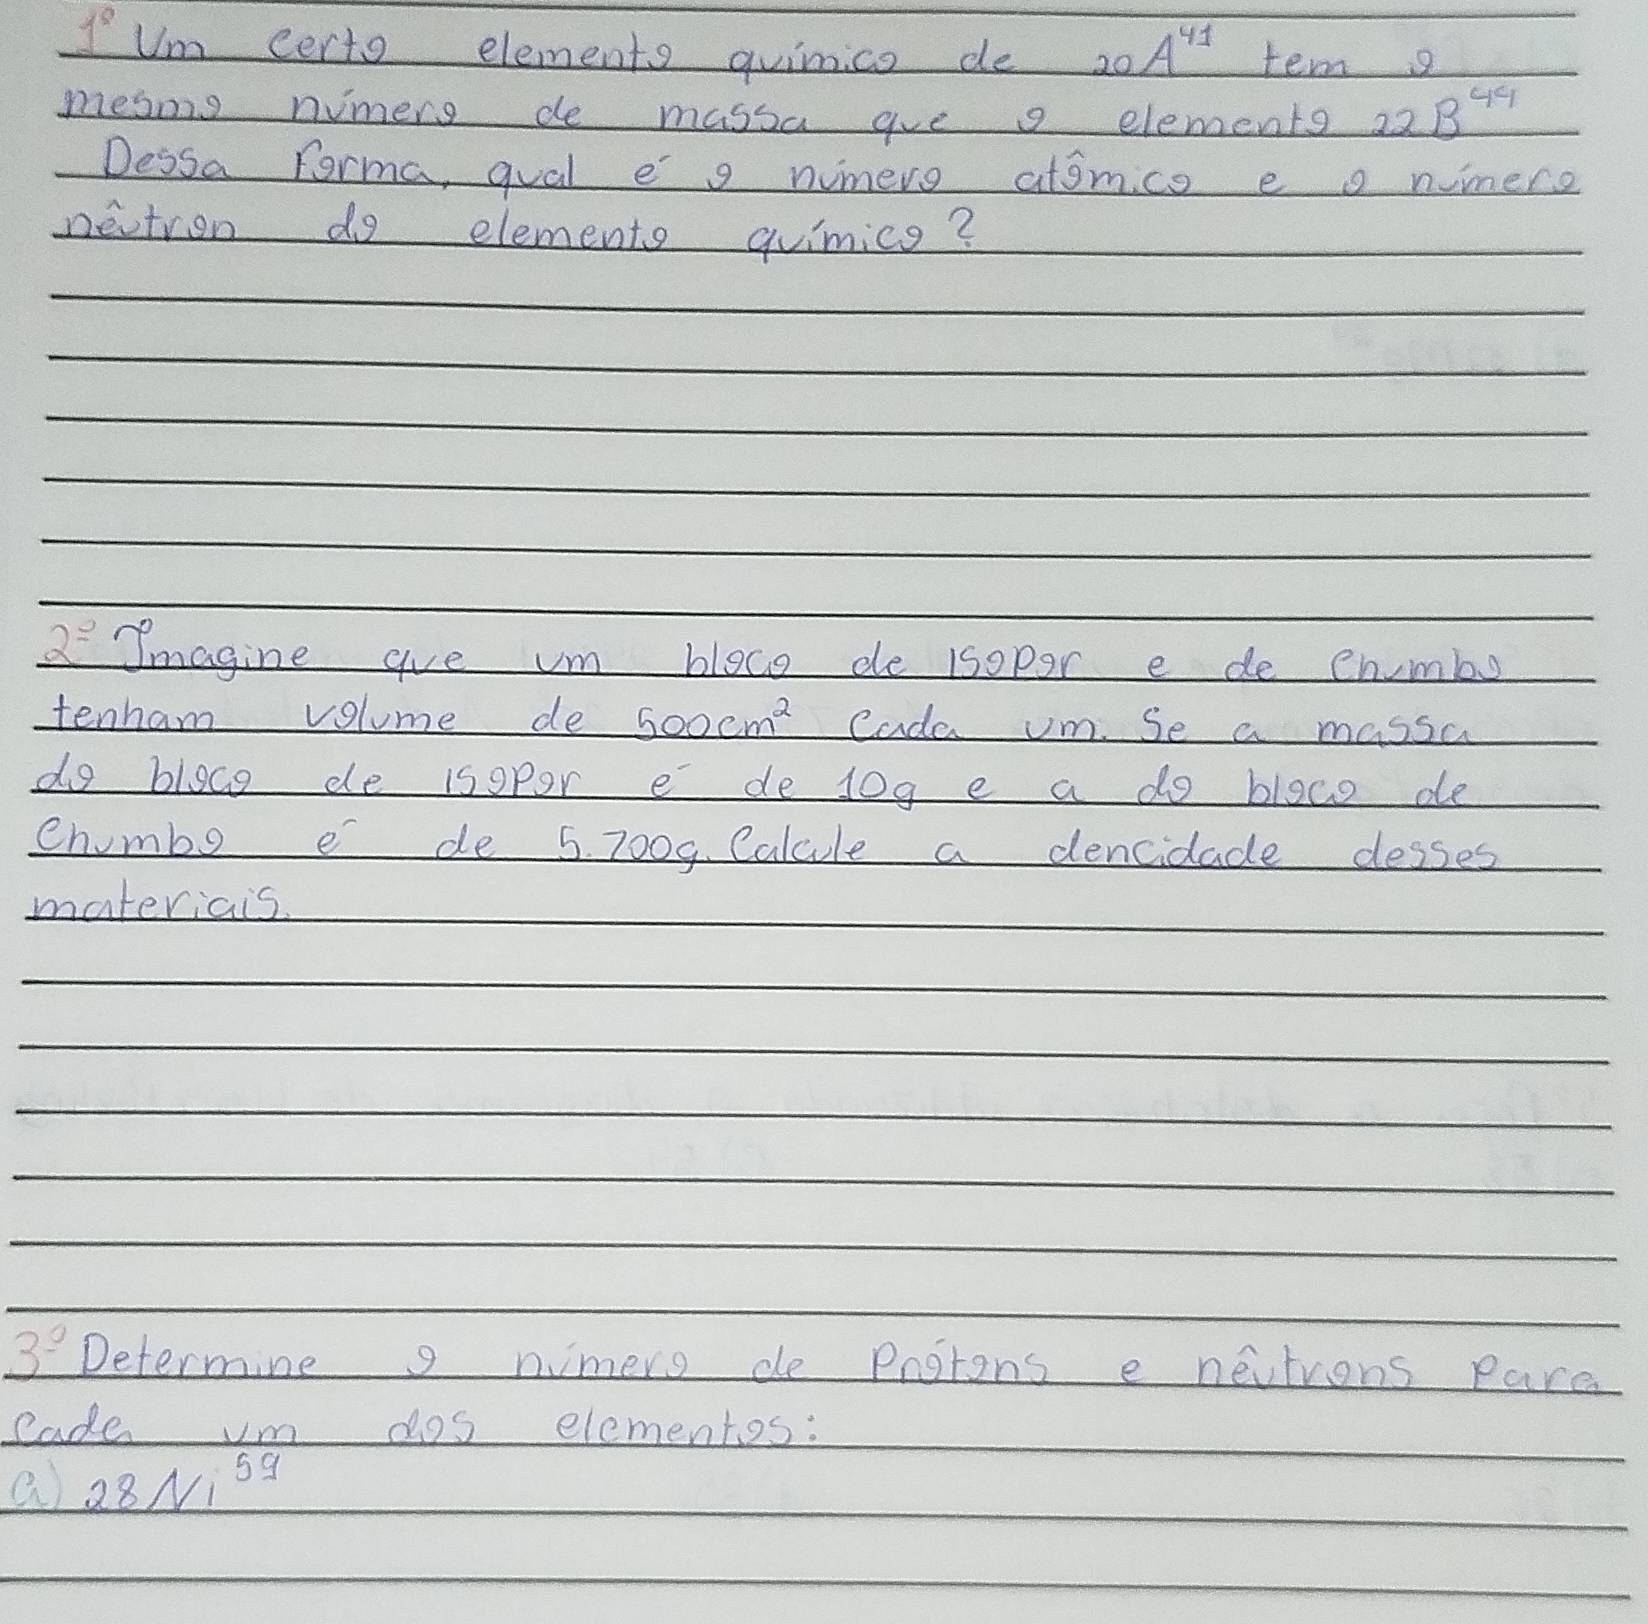 1º Um certo elemento químico de 20A⁴¹ tem o
mesmo número de massa que o elemento 22B⁴⁴
Dessa forma, qual é o número atômico e o número
nêutron do elemento químico?
2º Imagine que um bloco de isopor e de chumbo
tenham volume de 500cm² cada um. Se a massa
do bloco de isopor é de 10g e a do bloco de
chumbo é de 5.700g. Calcule a dencidade desses
materiais.
3º Determine o número de prótons e nêutrons para
cada um dos elementos:
a) 28Ni⁵⁹